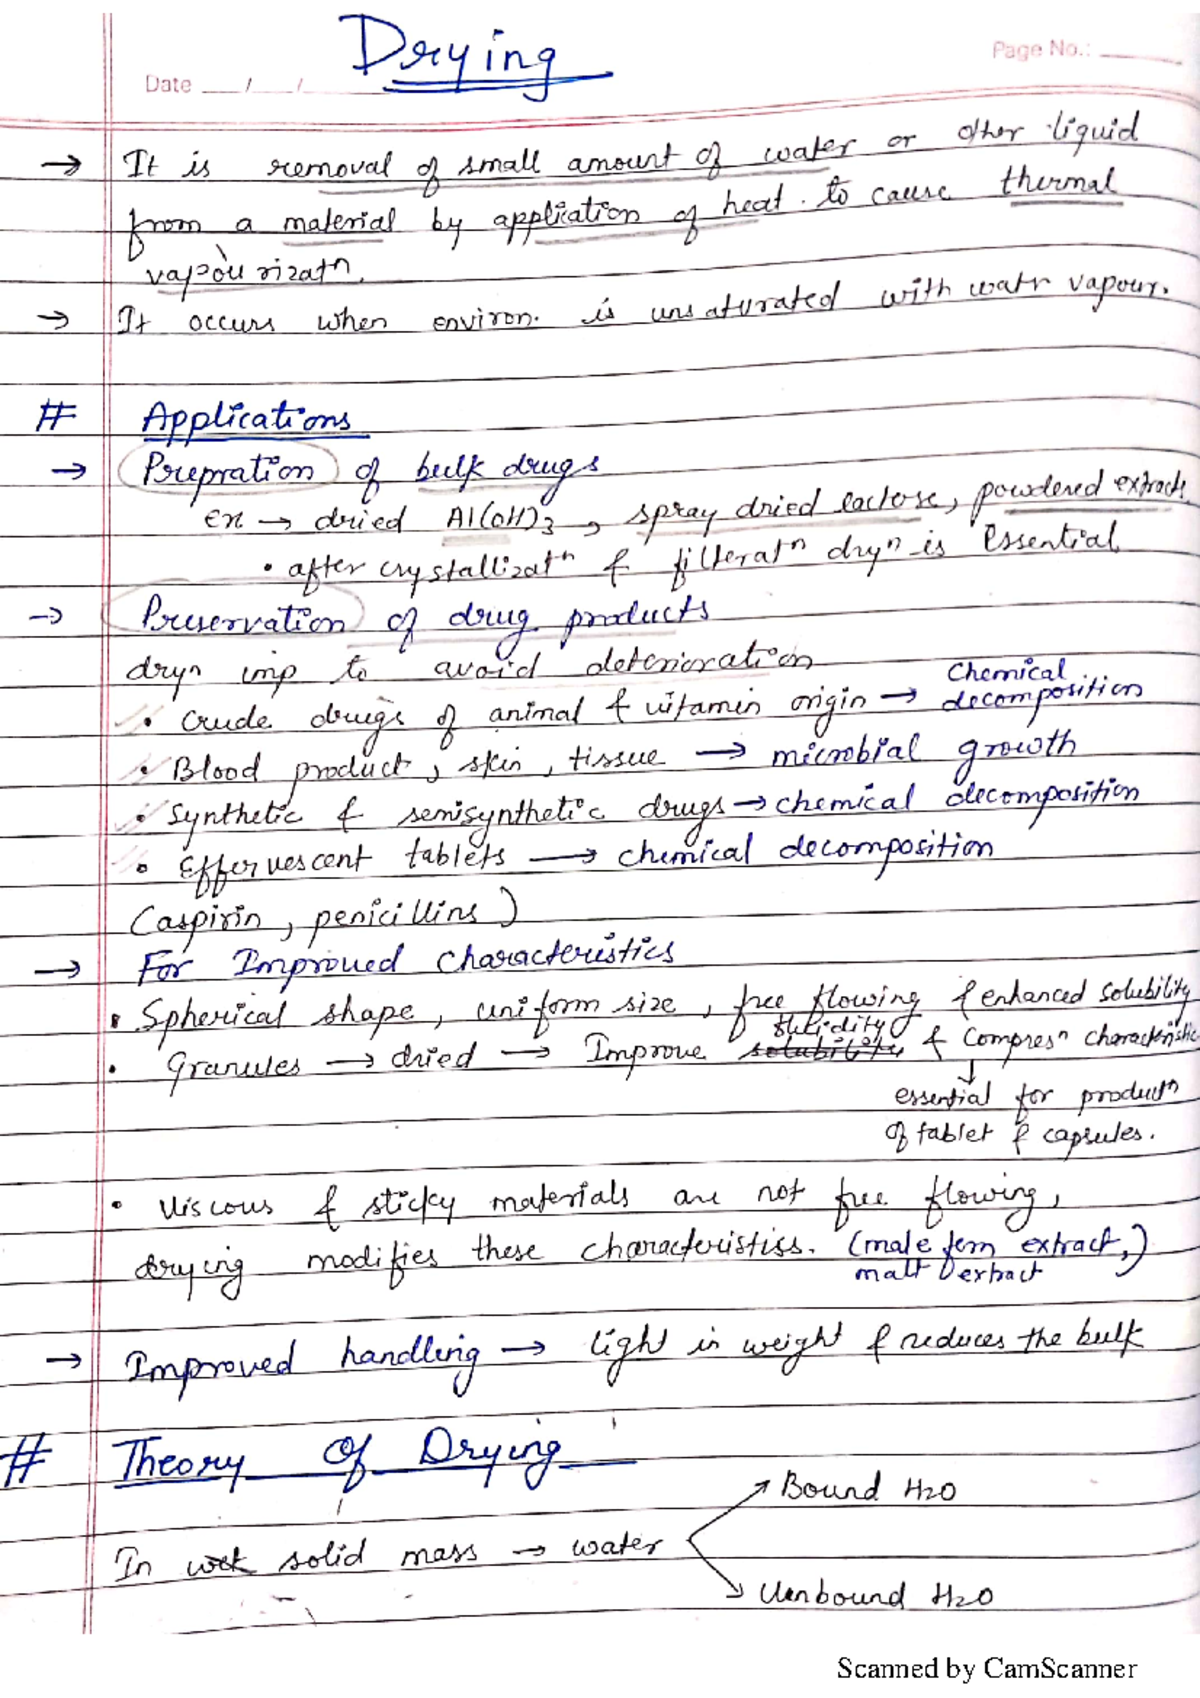 Drying
Date ___/___/___
Page No.: ____
→ It is removal of small amount of water or other liquid
from a material by application of heat. to cause thermal
vapourizatn.
→ It occurs when environ. is unsaturated with watr vapour.
# Applications
→ Prepration of bulk drugs
Ex → dried Al(OH)3, spray dried lactose, powdered extracts
• after crystallizatn & filteratn dryn is Essential
→ Preservation of drug products
dryn imp to avoid deterioration
• Crude drugs of animal & vitamin origin → Chemical
decomposition
• Blood product, skin, tissue → microbial growth
• Synthetic & semisynthetic drugs → chemical decomposition
• Effervescent tablets → chemical decomposition
(aspirin, penicillins)
→ For Improved characteristics
• Spherical shape, uniform size, free flowing & enhanced solubility
• Granules → dried → Improve fluidity & Compresn characteristic
essential for productn
of tablet & capsules.
• Viscous & sticky materials are not free flowing,
drying modifies these characteristiss. (male fern extract,)
malt extract
→ Improved handling → light in weight & reduces the bulk
# Theory Of Drying
In wet solid mass → water
Bound H2O
Unbound H2O
Scanned by CamScanner